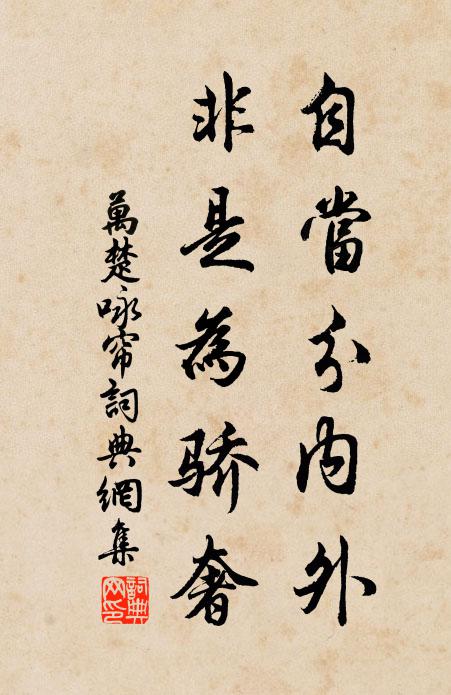 自當分內外
非是為骄奢
萬楚咏帘詞典網集
詞典網印